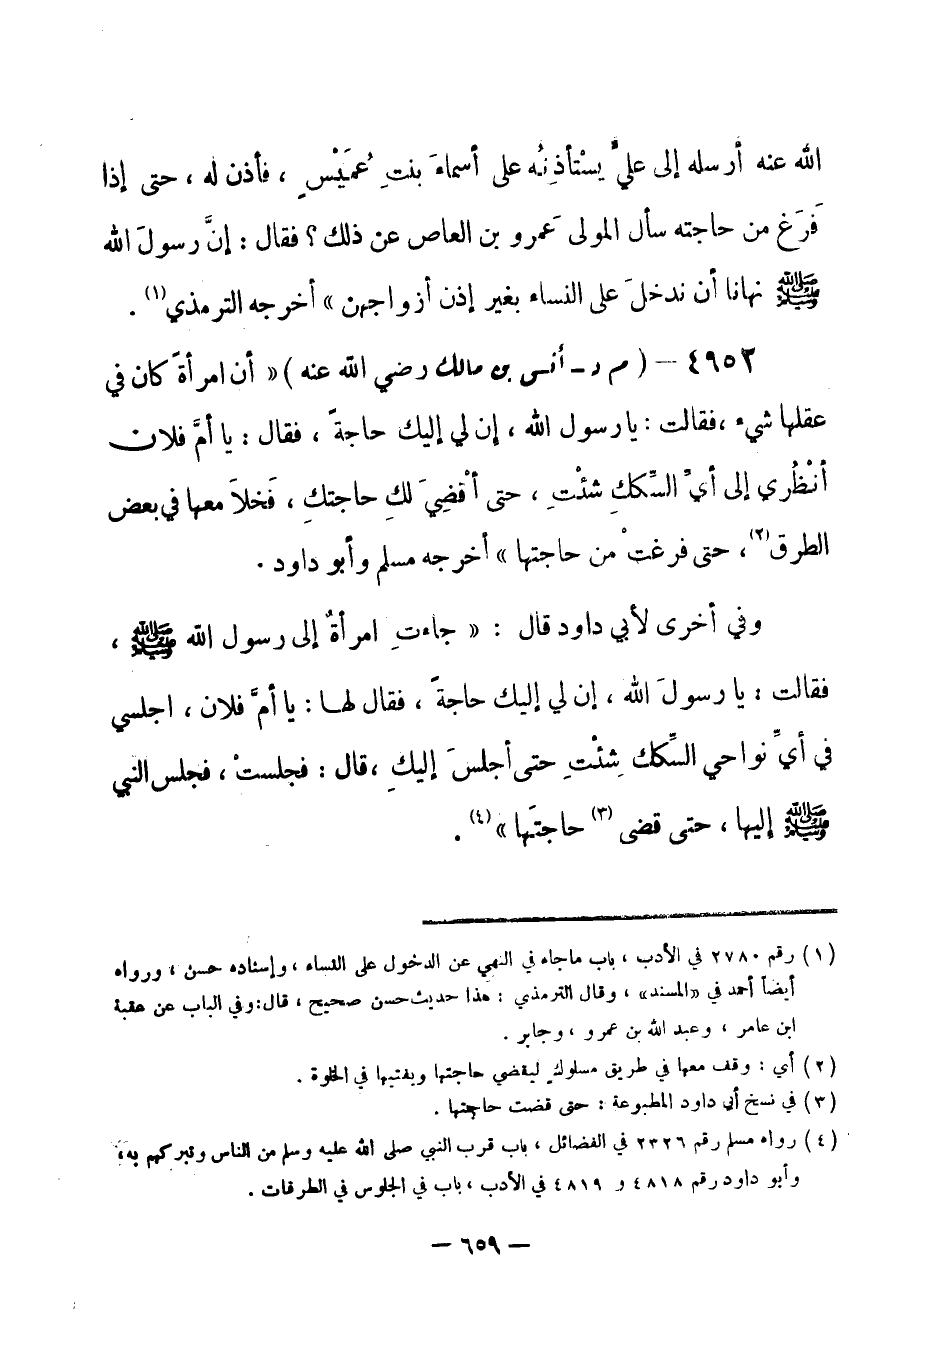 الله عنه أرسله إلى عليٍّ يستأذِنُه على أسماءَ بنتِ عُمَيْسٍ ، فأذن له ، حتى إذا
فَرَغ من حاجته سأل المولى عَمرو بن العاص عن ذلك ؟ فقال : إنَّ رسولَ الله
ﷺ نهانا أن ندخلَ على النساء بغير إذن أزواجهن » أخرجه الترمذي(١) .
٤٩٥٣ – ( م د – أنس بن مالك رضي الله عنه ) « أن امرأةً كان في
عقلها شيء ، فقالت : يا رسول الله ، إن لي إليك حاجةً ، فقال : يا أمَّ فلان
أنْظُري إلى أيِّ السِّككِ شئْتِ ، حتى أقْضِيَ لكِ حاجتكِ ، فَخلاَ معها في بعض
الطرق(٢)، حتى فرغتْ من حاجتها » أخرجه مسلم وأبو داود .
وفي أخرى لأبي داود قال : « جاءتِ امرأةٌ إلى رسول الله ﷺ ،
فقالت : يا رسولَ الله ، إن لي إليك حاجةً ، فقال لها : يا أمَّ فلان ، اجلسي
في أيِّ نواحي السِّكك شِئْتِ حتى أجلسَ إليكِ ، قال : فجلستْ ، فجلس النبي
ﷺ إليها ، حتى قضى (٣) حاجتَها »(٤) .
(١) رقم ٢٧٨٠ في الأدب ، باب ماجاء في النهي عن الدخول على النساء ، وإسناده حسن ، ورواه
أيضاً أحمد في «المسند» ، وقال الترمذي : هذا حديث حسن صحيح ، قال: وفي الباب عن عقبة
ابن عامر ، وعبد الله بن عمرو ، وجابر .
(٢) أي : وقف معها في طريق مسلوكٍ ليقضي حاجتها ويفتيها في الخلوة .
(٣) في نسخ أبي داود المطبوعة : حتى قضت حاجتها .
(٤) رواه مسلم رقم ٢٣٢٦ في الفضائل ، باب قرب النبي صلى الله عليه وسلم من الناس وتبركهم به،
وأبو داود رقم ٤٨١٨ و ٤٨١٩ في الأدب ، باب في الجلوس في الطرقات .
– ٦٥٩ –